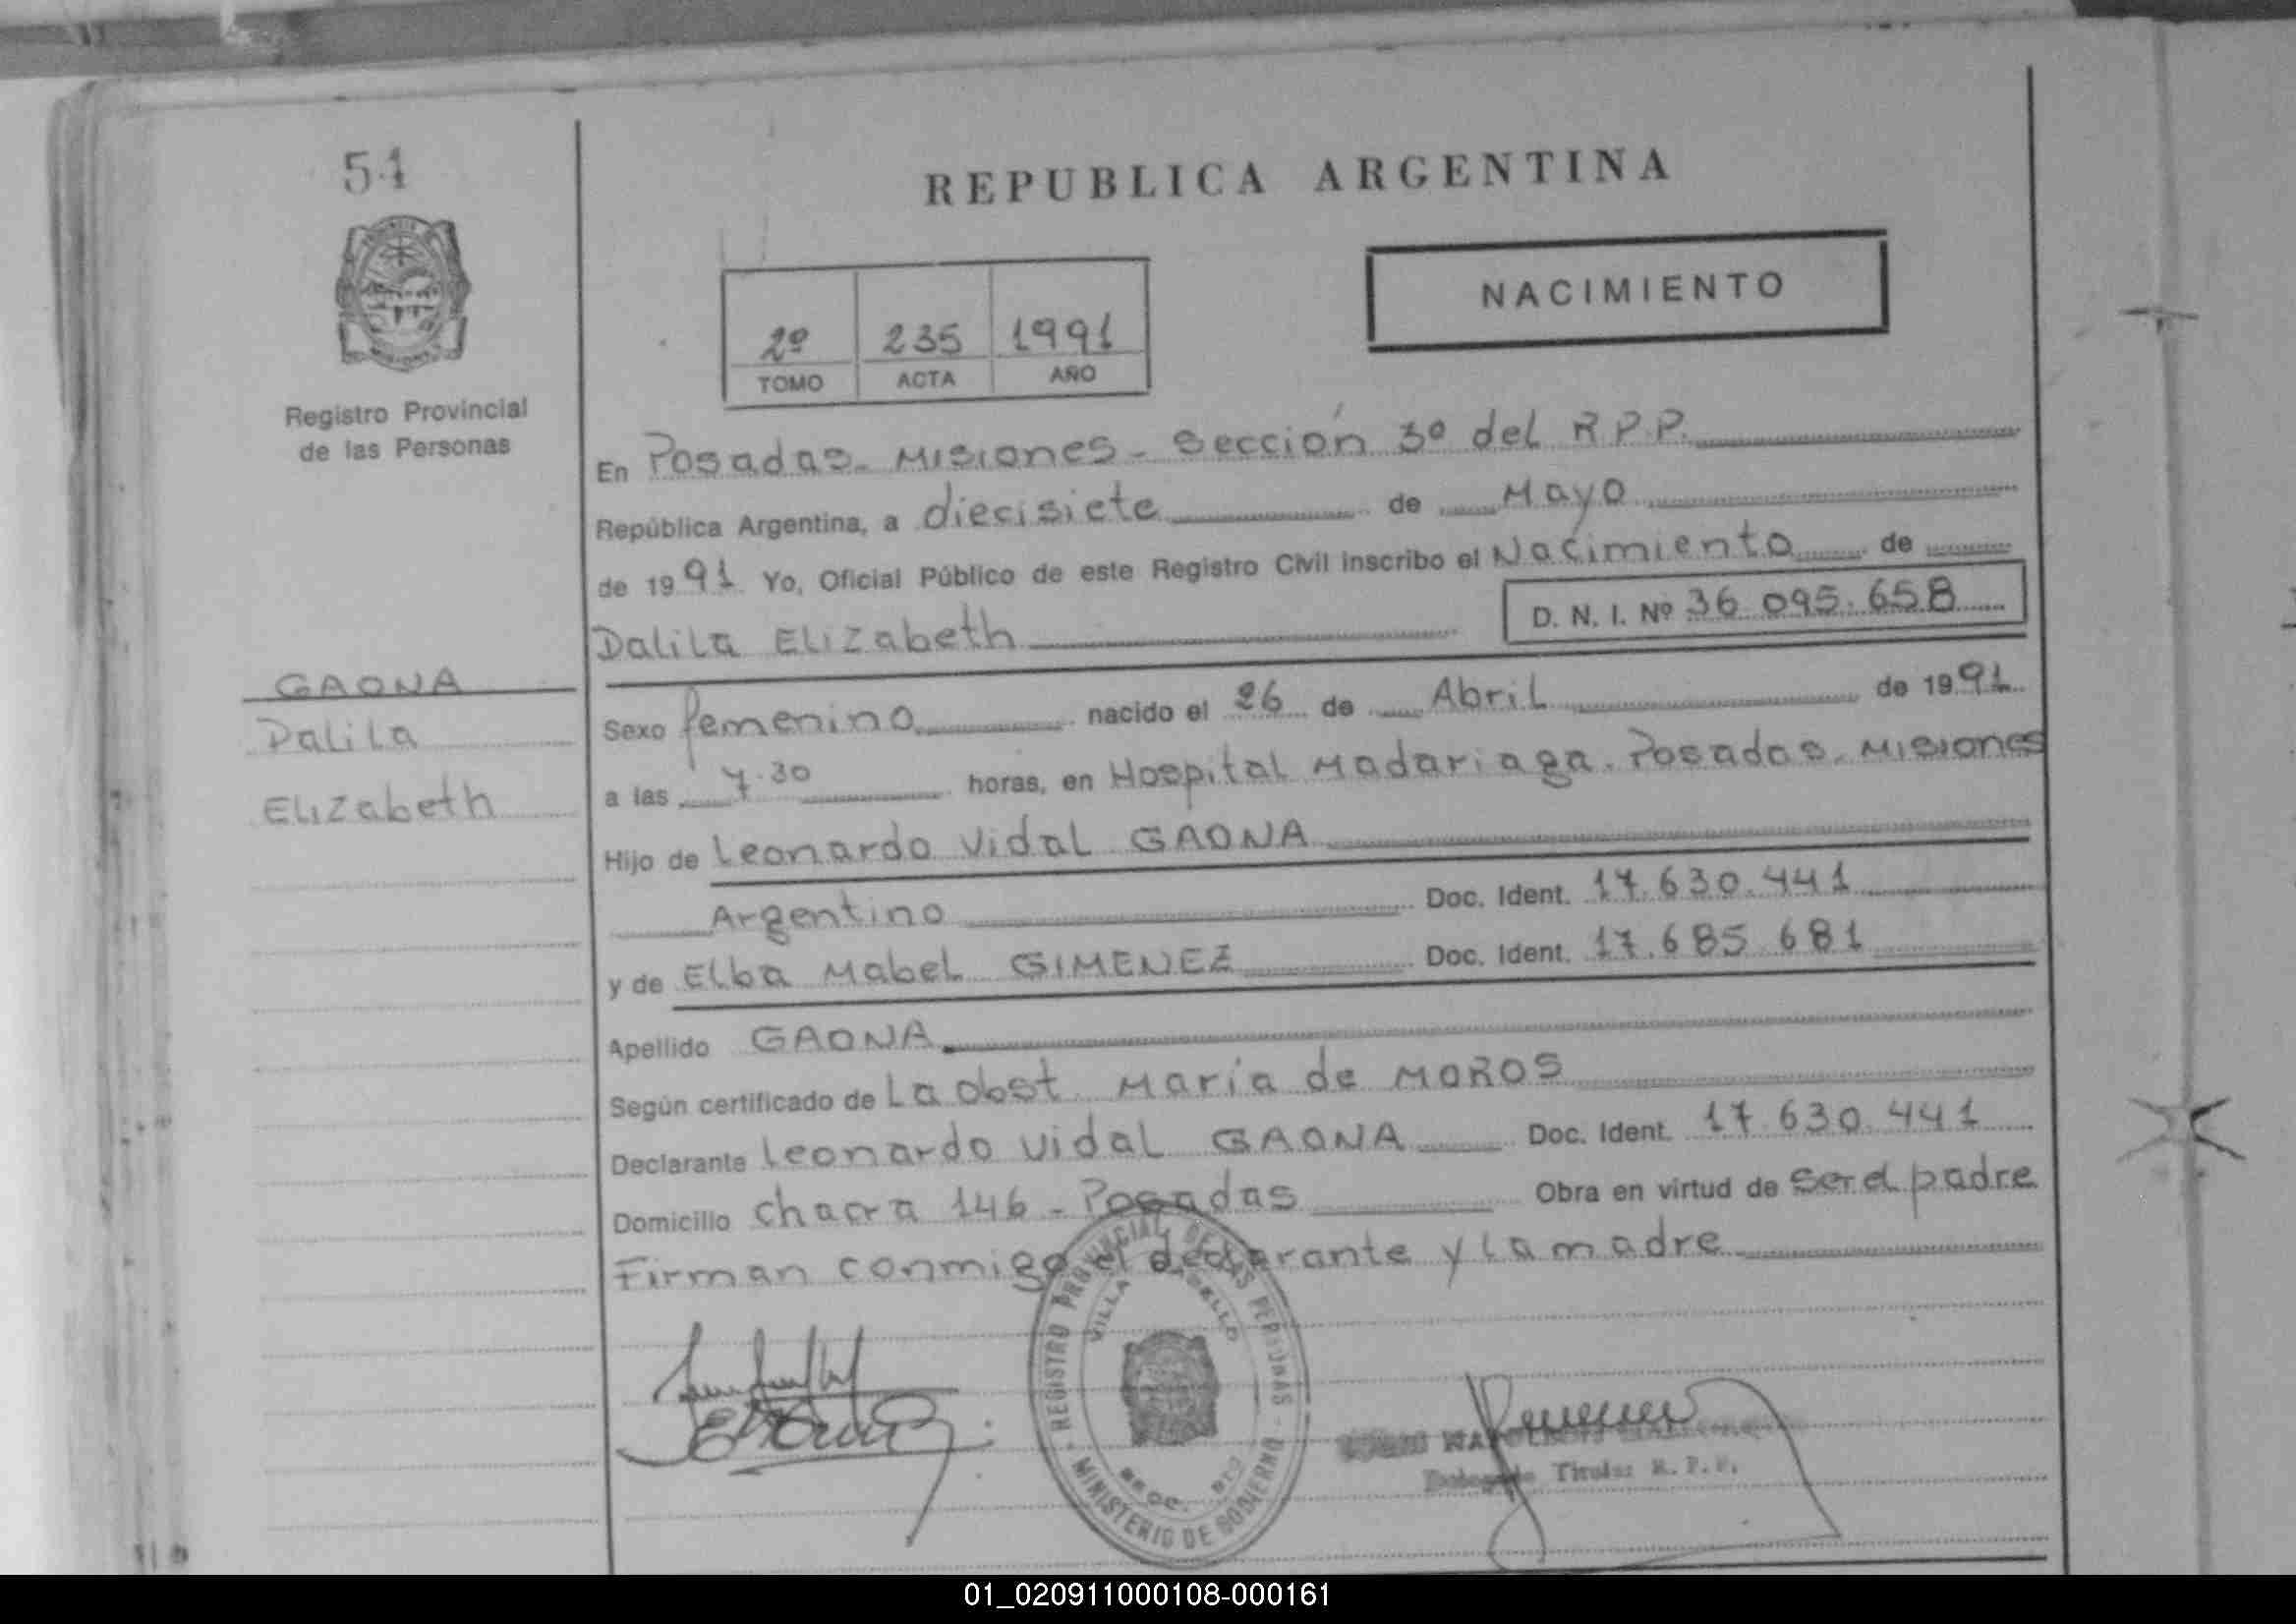 51
REPUBLICA ARGENTINA
NACIMIENTO
2º 235 1991
TOMO ACTA AÑO
Registro Provincial
de las Personas
En Posadas - Misiones - Sección 3º del R.P.P.
República Argentina, a diecisiete de Mayo
de 1991 Yo, Oficial Público de este Registro Civil inscribo el Nacimiento de
Dalila Elizabeth D. N. I. Nº 36.095.658
GAONA
Dalila
Elizabeth
Sexo femenino nacido el 26 de Abril de 1991
a las 7.30 horas, en Hospital Madariaga. Posadas. Misiones
Hijo de Leonardo Vidal GAONA
Argentino Doc. Ident. 17.630.441
y de Elba Mabel GIMENEZ Doc. Ident. 17.685.681
Apellido GAONA
Según certificado de La Obst. María de MOROS
Declarante Leonardo Vidal GAONA Doc. Ident. 17.630.441
Domicilio chacra 146 - Posadas Obra en virtud de ser el padre
Firman conmigo el declarante y la madre
REGISTRO PROVINCIAL DE LAS PERSONAS - MINISTERIO DE GOBIERNO
VILLA
Titular R. P. P.
01_020911000108-000161